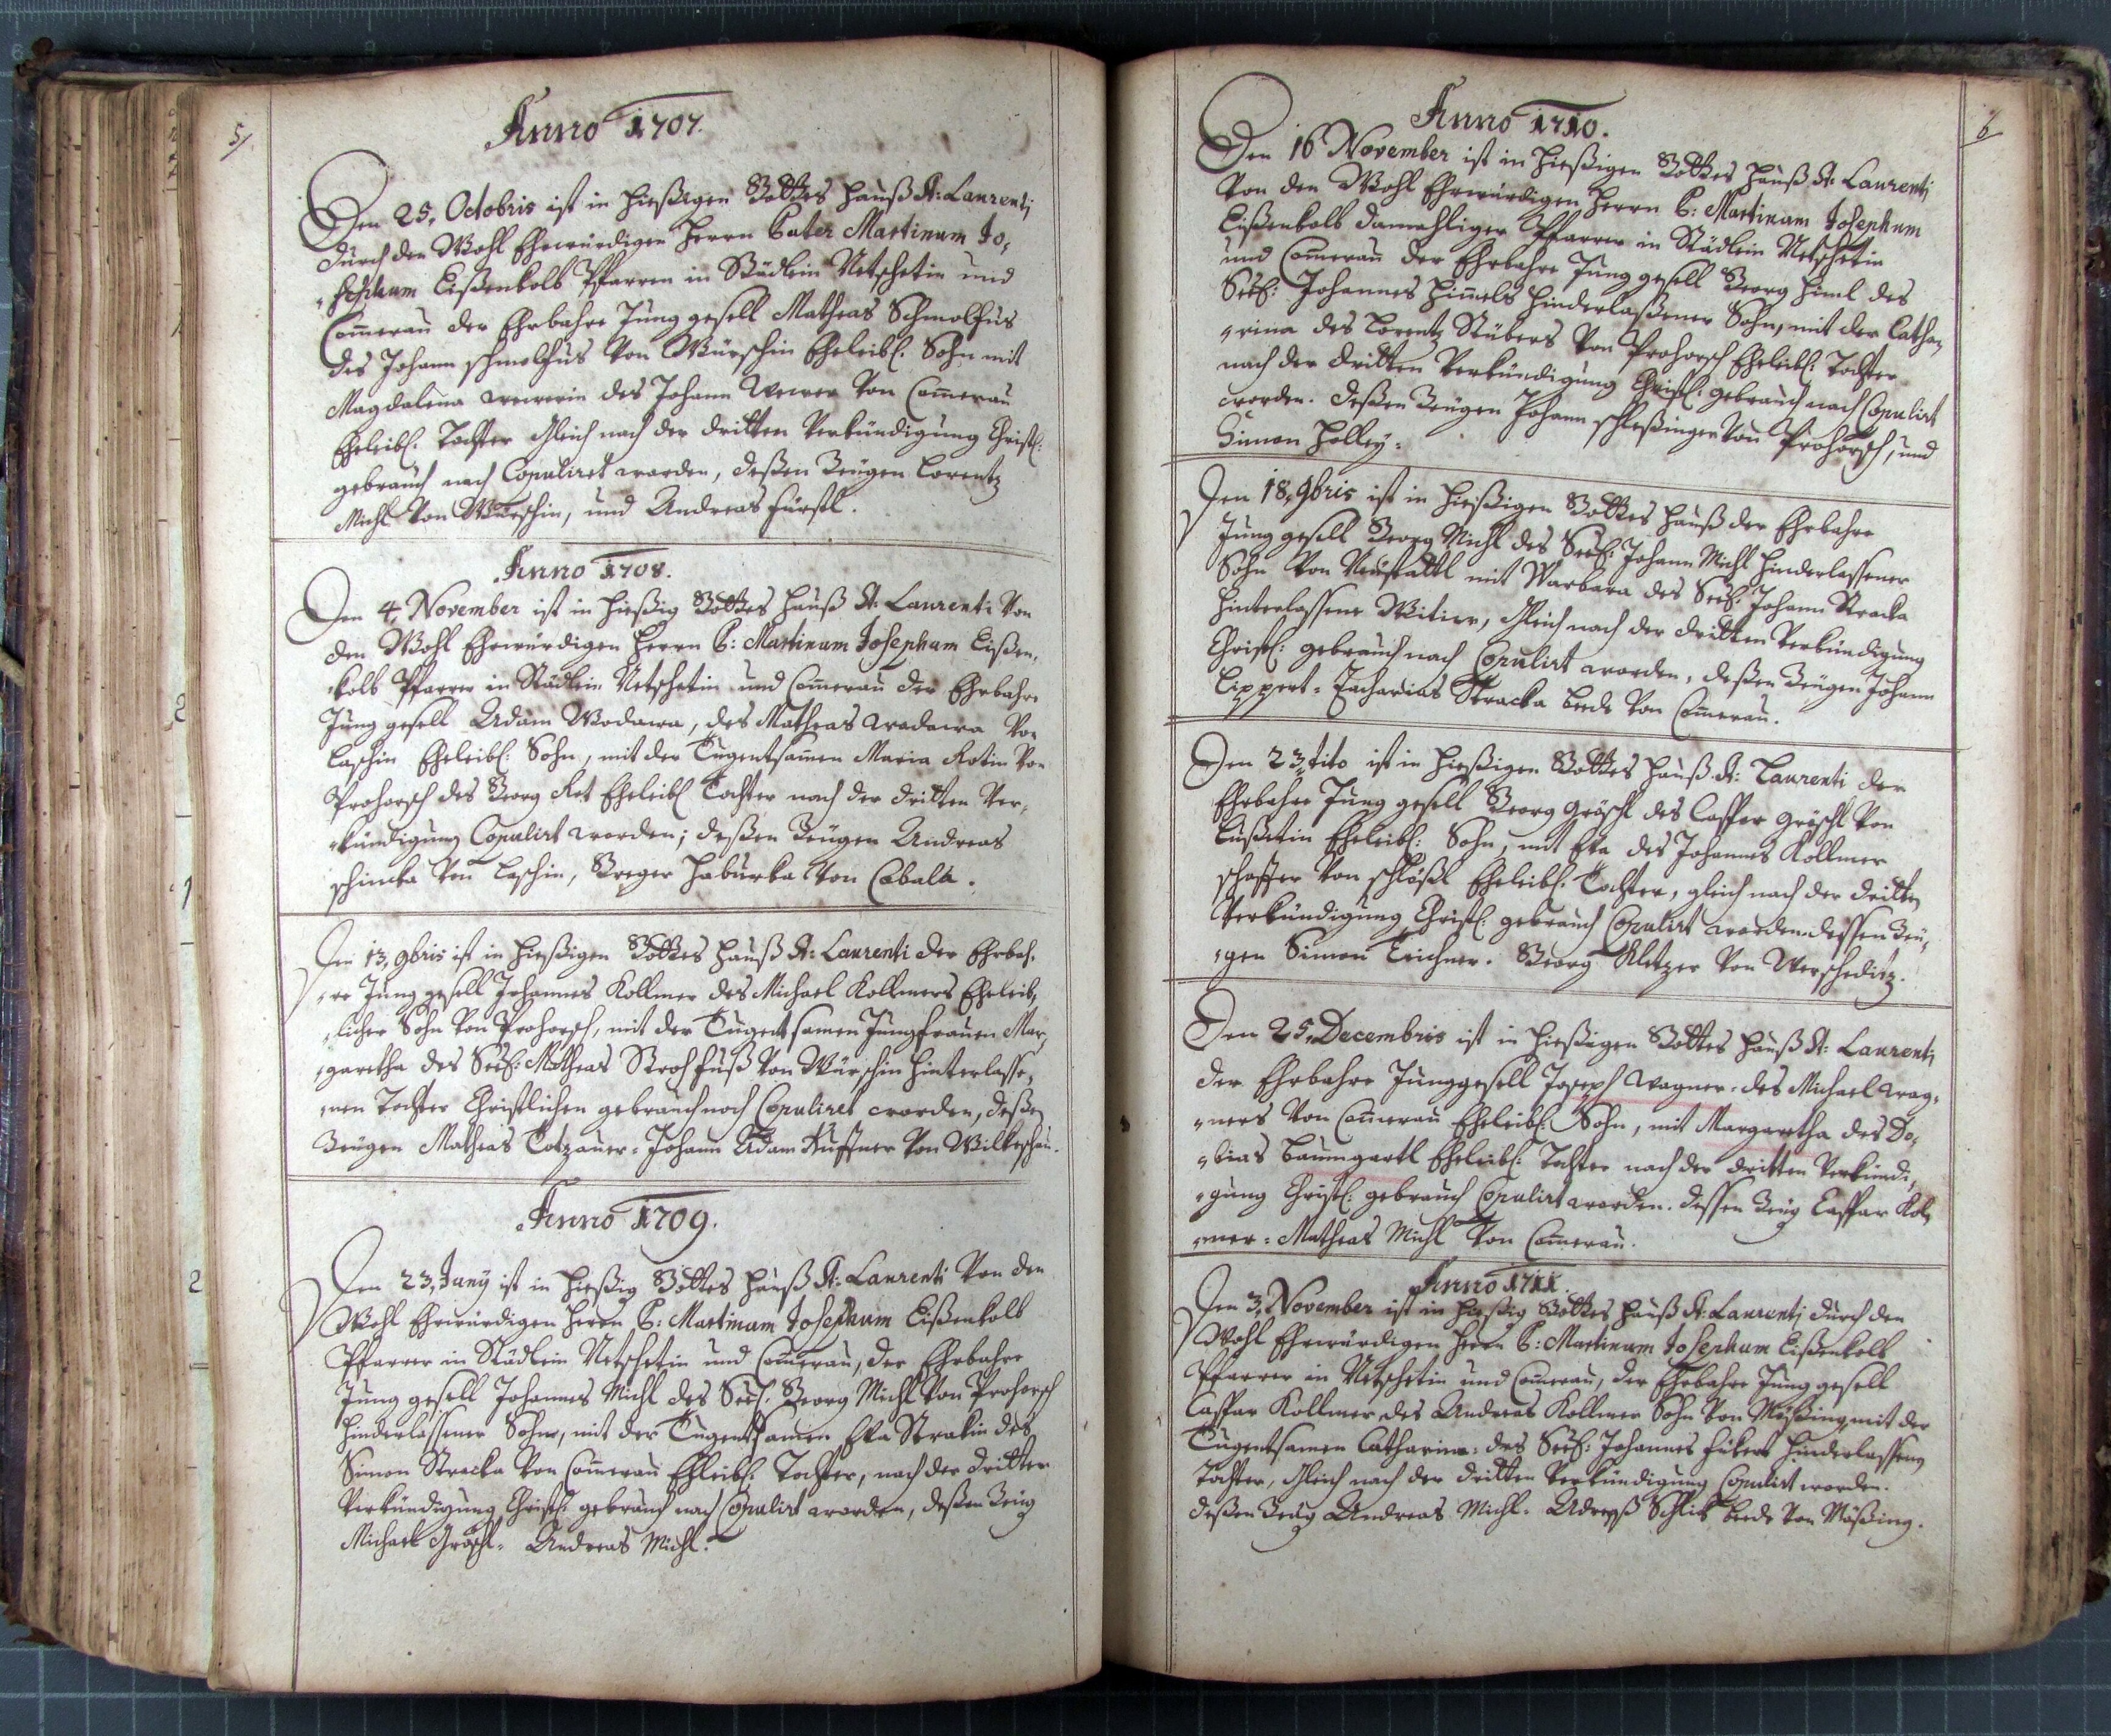 5/.
Anno 1707.
Den 25, Octobris ist in hießigen Gottes hauß St: Laurentj
durch den Wohl Ehrwürdigen Herrn Pater Martinum Jo,
sephum Eißenkolb Pfarrern in Städlein Netschetin und
Com̄erau der Ehrbahre Jung gesell Matheas Schmolfus
des Johann schmolfus Von Würschin Eheleibl. Sohn mit
Magdalena des Johann Von Com̄erau
Eheleibl. Tochter Gleich nach der dritten Verkündigung Christl:
gebrauch nach Copuliret worden, deßen Zeugen Lorentz
Michl Von Würschin, und Andreas fürstl.
Anno 1708.
Den 4, November ist in hießig Gottes hauß St: Laurenti Von
den Wohl Ehrwürdigen Herrn P: Martinum Josephum Eißen,
kolb Pfarrer in Städlein Netschetin und Com̄erau der Ehrbahre
Jung gesell Adam Wodawa, des Matheas wadawa Von
Laschin Eheleibl: Sohn, mit der Tugentsamen Maria Rotin Von
Prohorsch des Georg Rot Eheleibl Tochter nach der dritten Ver,
kündigung Copulirt worden; deßen Zeugen Andreas
schimka Von Laschin, Greger Haburka Von Cabala.
Den 13, 9bris ist in hießigen Gottes hauß St: Laurenti der Ehrbah,
re Jung gesell Johannes Kollmer des Michael Kollmers Eheleib,
licher Sohn Von Prohorsch, mit der Tugentsamen Jungfrauen Mar,
garetha des Seel: Matheas Strohfuß Von Würschin hinterlasse,
nen Tochter Christlichen gebrauch noch Copuliret worden, deßen
Zeugen Matheas Totzauer. Johann Adam Von
Anno 1709.
Den 23, Juny ist in hießig Gottes hauß St: Laurenti Von den
Wohl Ehrwürdigen Herrn P: Martinum Josephum Eißenkolb
Pfarrer in Städlein Netschetin und Com̄erau, der Ehrbahre
Jung gesell Johannes Michl des Seel. Georg Michl Von Prohorsch
hinderlassener Sohn, mit der Tugentsamen Eva Strakin des
Simon Stracka Von Com̄erau Eheleibl. Tochter, nach der dritten
Verkündigung Christl: gebrauch nach Copulirt worden, deßen Zeug
Michael Gröschl. Andreas Michl.
6
Anno 1710.
Den 16 November ist in hießigen Gottes hauß St: Laurentj
Von den Wohl Ehrwürdigen Herrn P: Martinum Josephum
Eißenkolb damahliger Pfarrer in Städlein Netschetin
und Com̄erau der Ehrbahre Jung gesell Georg Himl des
Seel: Johannes Him̄els hinderlaßener Sohn, mit der Catha,
rina des Lorentz Stübers Von Prohorsch Eheleibl: Tochter
nach der dritten Verkündigung Christl: gebrauch nach Copulirt
worden. deßen Zeugen Johann schleßinger Von Prohorsch, und
Simon Holley.
Den 18, 9bris ist in hießigen Gottes hauß der Ehrbahre
Jung gesell Georg Michl des Seel: Johann Michl hinderlassener
Sohn Von Neustattl mit Warbara des Seel: Johann Stracka
hinterlassene Witiw, Gleich nach der dritten Verkündigung
Christl: gebrauch nach Copulirt worden, deßen Zeugen Johann
Lippert. Zacharias Stracka beede Von Com̄erau.
Den 23 tito ist in hießigen Gottes hauß St: Laurenti der
Ehrbahre Jung gesell Georg Gröschl des Casper Gröschl Von
Eheleibl: Sohn, mit Eva des Johannes Kollmer
schaffer Von schlößl Eheleibl. Tochter, gleich nach der dritten
Verkündigung Christl: gebrauch Copulirt worden. dessen Zeu,
gen Simon Teichner. Georg Kletzer Von Werscheditz.
Den 25, Decembris ist in hießigen Gottes hauß St: Laurentj
der Ehrbahre Junggesell Joseph Wagner. des Michael Wag,
ners Von Com̄erau Eheleibl: Sohn, mit Margaretha des Do,
bias Baumgartl Eheleibl: Tochter nach der dritten Verkündi,
gung Christl: gebrauch Copulirt worden. dessen Zeug Caspar Kol,
mer. Matheas Michl Von Com̄erau.
Anno 1711.
Den 3, November ist in hießig Gottes hauß St: Laurentj durch den
Wohl Ehrwürdigen Herrn P: Martinum Josephum Eißenkolb
Pfarrer in Netschetin und Com̄erau, der Ehrbahre Jung gesell
Caspar Kollmer des Andreas Kollmer Sohn Von Mößing, mit der
Tugentsamen Catharina: des Seel: Johannes hinderlassene
Tochter, Gleich nach der dritten Verkündigung Copulirt worden.
deßen Zeug Andreas Michl. beede Von Mößing.